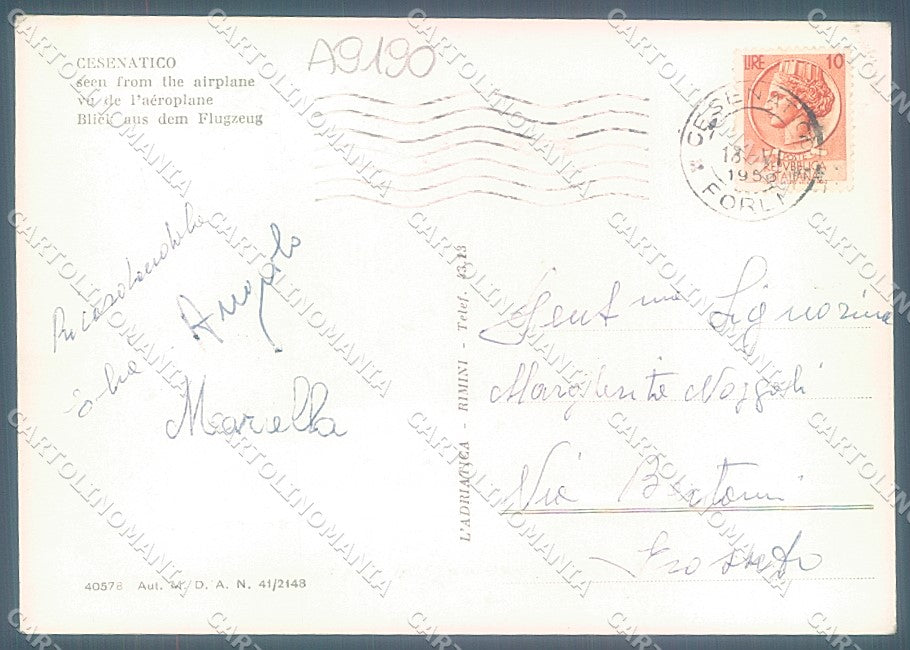 CESENATICO
seen from the airplane
vu de l'aéroplane
Blick aus dem Flugzeug
A9190
LIRE 10
POSTE
REPVBBLICA
ITALIANA
CESENATICO
FORLI
Angelo
Marella
L'ADRIATICA - RIMINI - Telef. 43.13
Gent.ma Signorina
Margherita
Via Batoni
Grosseto
40576 Aut. M. D. A. N. 41/2148
CARTOLINOMANIA